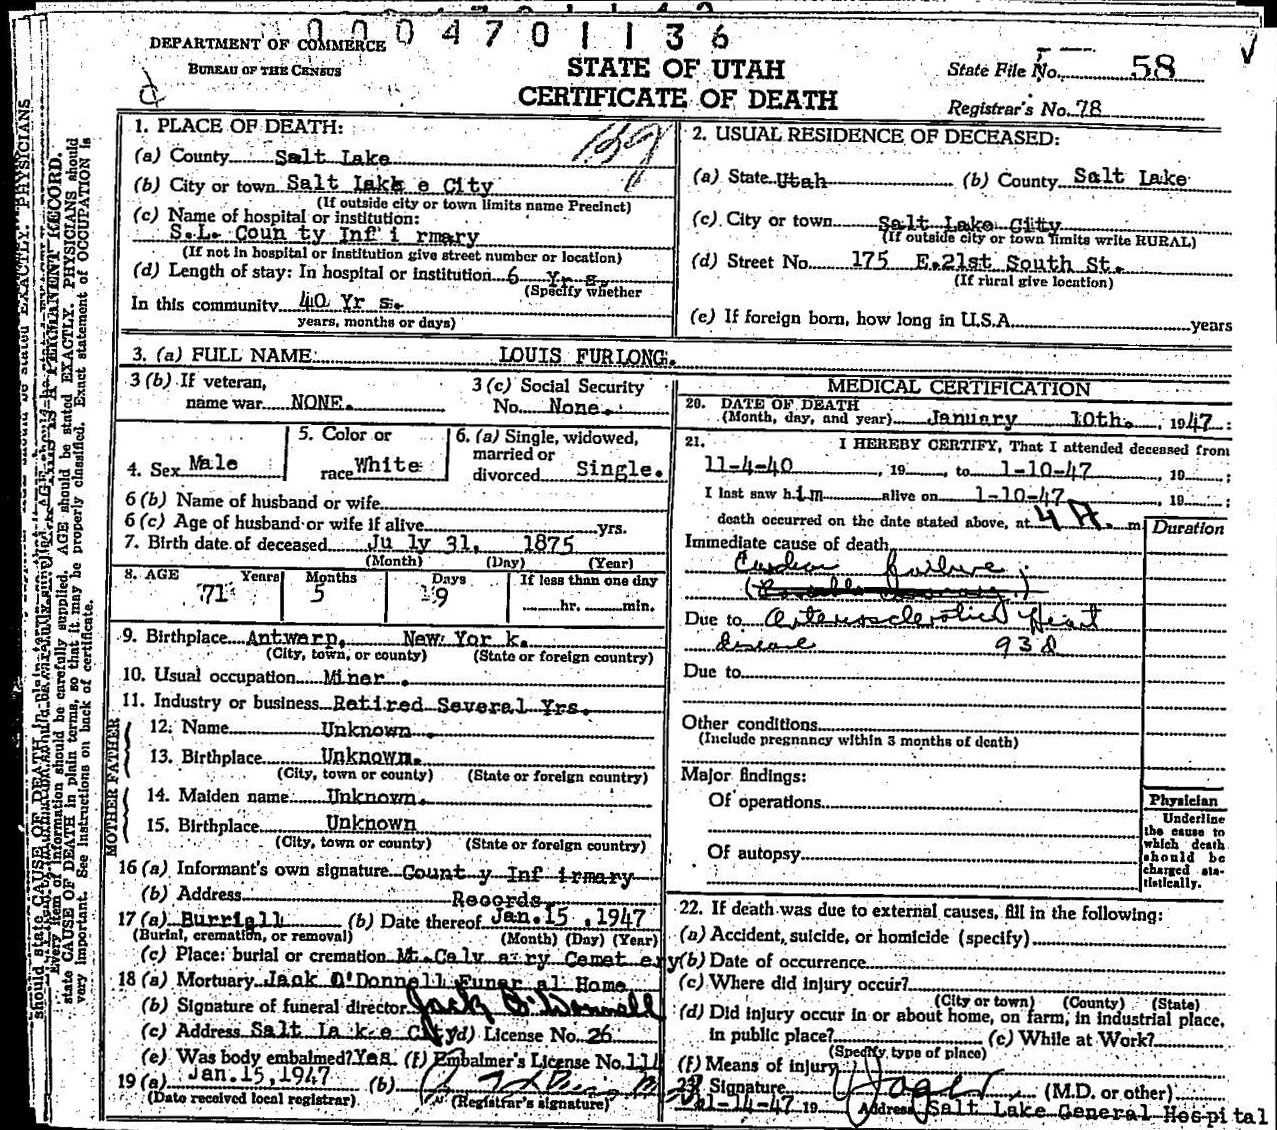 0 0 0 4 7 0 1 1 3 6
DEPARTMENT OF COMMERCE
BUREAU OF THE CENSUS
STATE OF UTAH
CERTIFICATE OF DEATH
State File No. 58
Registrar's No. 78
1. PLACE OF DEATH:
(a) County Salt Lake
(b) City or town Salt Lake City
(If outside city or town limits name Precinct)
(c) Name of hospital or institution:
S.L. County Infirmary
(If not in hospital or institution give street number or location)
(d) Length of stay: In hospital or institution 6 Yrs.
(Specify whether
In this community 40 Yrs.
years, months or days)
2. USUAL RESIDENCE OF DECEASED:
(a) State Utah (b) County Salt Lake
(c) City or town Salt Lake City
(If outside city or town limits write RURAL)
(d) Street No. 175 E.21st South St.
(If rural give location)
(e) If foreign born, how long in U.S.A. years
3. (a) FULL NAME LOUIS FURLONG.
3 (b) If veteran,
name war NONE.
3 (c) Social Security
No. None.
4. Sex Male
5. Color or
race White
6. (a) Single, widowed,
married or
divorced Single.
6 (b) Name of husband or wife
6 (c) Age of husband or wife if alive yrs.
7. Birth date of deceased July 31, 1875
(Month) (Day) (Year)
8. AGE Years Months Days If less than one day
71 5 19 hr. min.
9. Birthplace Antwerp, New York.
(City, town, or county) (State or foreign country)
10. Usual occupation Miner.
11. Industry or business Retired Several Yrs.
FATHER
12. Name Unknown.
13. Birthplace Unknown.
(City, town or county) (State or foreign country)
MOTHER
14. Maiden name Unknown.
15. Birthplace Unknown
(City, town or county) (State or foreign country)
16 (a) Informant's own signature County Infirmary
(b) Address Records.
17 (a) Burriall (b) Date thereof Jan.15, 1947
(Burial, cremation, or removal) (Month) (Day) (Year)
(c) Place: burial or cremation Mt. Calvary Cemetery
18 (a) Mortuary Jack O'Donnell Funeral Home
(b) Signature of funeral director Jack O'Donnell
(c) Address Salt Lake City (d) License No. 26
(e) Was body embalmed? Yes. (f) Embalmer's License No. 111
19 (a) Jan.15,1947 (b)
(Date received local registrar) (Registrar's signature)
MEDICAL CERTIFICATION
20. DATE OF DEATH
(Month, day, and year) January 10th. 1947
21. I HEREBY CERTIFY, That I attended deceased from
11-4-40, 19 , to 1-10-47, 19 ;
I last saw him alive on 1-10-47, 19 ;
death occurred on the date stated above, at 4 A. m
Duration
Immediate cause of death
Cardiac failure;
Due to Arteriosclerotic Heart
disease 93d
Due to
Other conditions
(Include pregnancy within 3 months of death)
Major findings:
Of operations
Of autopsy
Physician
Underline
the cause to
which death
should be
charged sta-
tistically.
22. If death was due to external causes, fill in the following:
(a) Accident, suicide, or homicide (specify)
(b) Date of occurrence
(c) Where did injury occur?
(City or town) (County) (State)
(d) Did injury occur in or about home, on farm, in industrial place,
in public place? (e) While at Work?
(Specify type of place)
(f) Means of injury
23. Signature (M.D. or other)
1-14-47 19 Address Salt Lake General Hospital